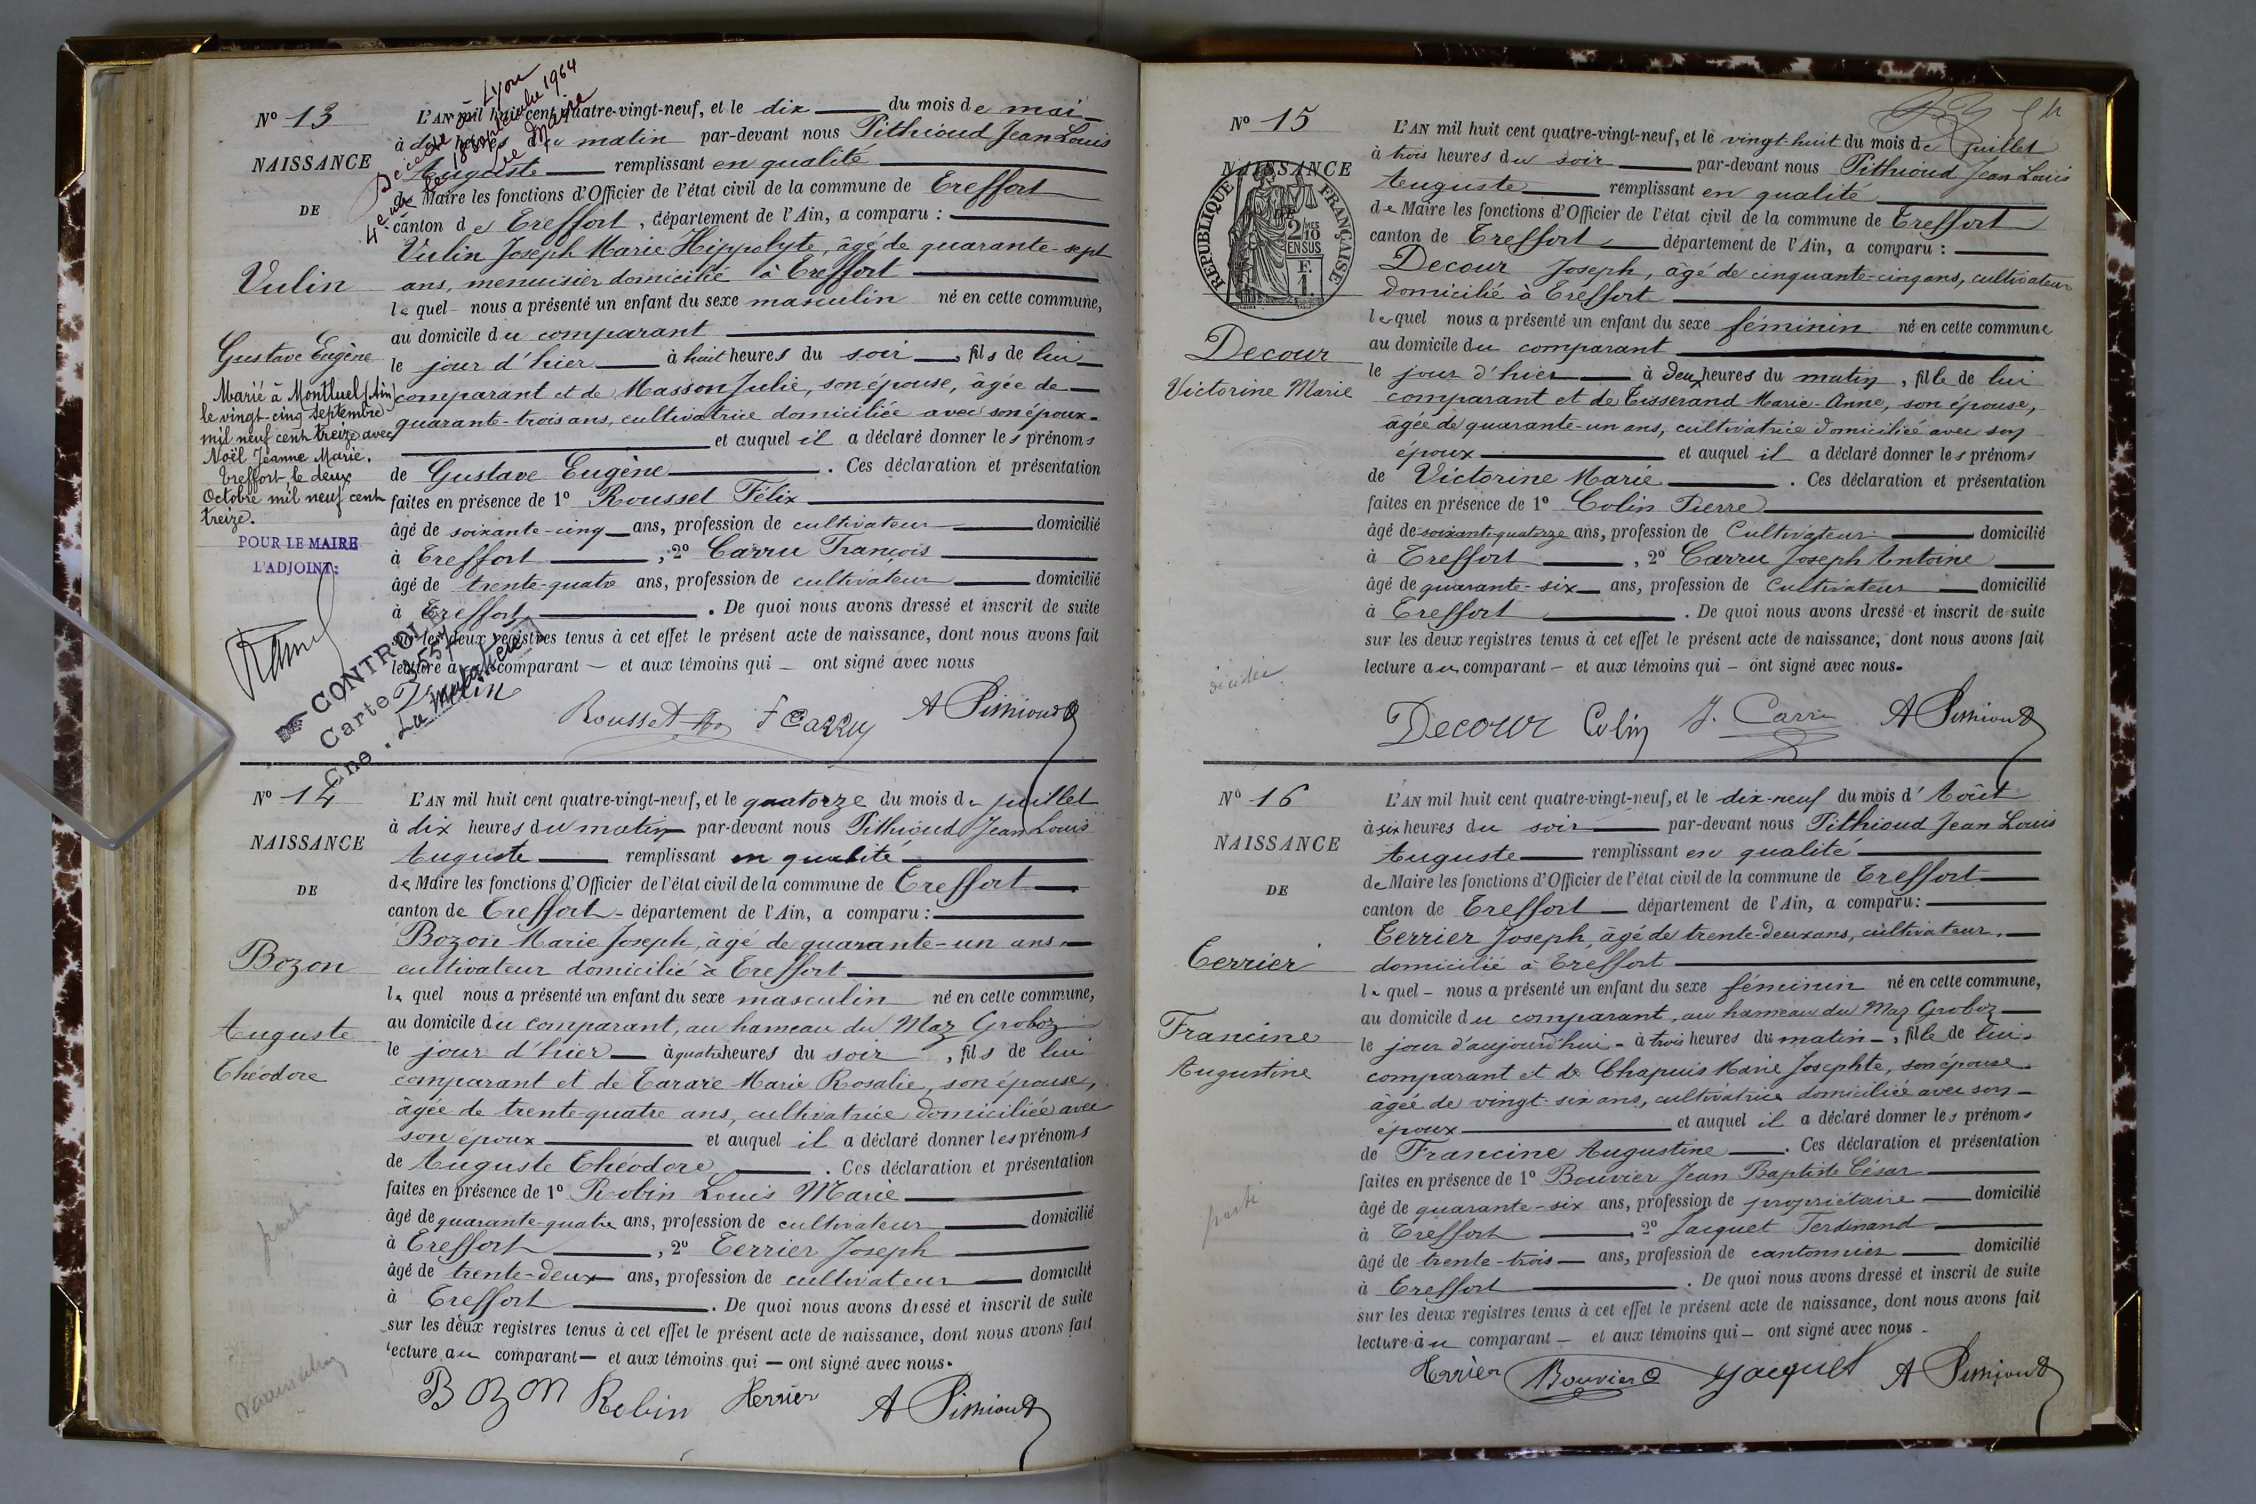 Nº 13
NAISSANCE
DE
Vulin
Gustave Eugène
Marié à Montluel (Ain)
le vingt-cinq Septembre
mil neuf cent treize avec
Noël Jeanne Marie.
Treffort, le deux
Octobre mil neuf cent
treize.
POUR LE MAIRE
L'ADJOINT:
Décédé à Lyon
4e le 18 septembre 1964
Le Maire
L'AN mil huit cent quatre-vingt-neuf, et le dix du mois de mai
à dix heures du matin par-devant nous Pithioud Jean Louis
Auguste remplissant en qualité
de Maire les fonctions d'Officier de l'état civil de la commune de Treffort
canton de Treffort, département de l'Ain, a comparu :
Vulin Joseph Marie Hippolyte, âgé de quarante-sept
ans, menuisier domicilié à Treffort
lequel nous a présenté un enfant du sexe masculin né en cette commune,
au domicile du comparant
le jour d'hier à huit heures du soir, fils de lui
comparant et de Masson Julie, son épouse, âgée de
quarante-trois ans, cultivatrice domiciliée avec son époux
et auquel il a déclaré donner les prénoms
de Gustave Eugène. Ces déclaration et présentation
faites en présence de 1º Rousset Félix
âgé de soixante-cinq ans, profession de cultivateur domicilié
à Treffort, 2º Carru François
âgé de trente-quatre ans, profession de cultivateur domicilié
à Treffort. De quoi nous avons dressé et inscrit de suite
sur les deux registres tenus à cet effet le présent acte de naissance, dont nous avons fait
lecture au comparant et aux témoins qui ont signé avec nous
CONTROLE
Carte 3557
Cne. La
Vulin Rousset F Carru A Pithioud
Nº 14
NAISSANCE
DE
Bozon
Auguste
Théodore
parti
L'AN mil huit cent quatre-vingt-neuf, et le quatorze du mois de juillet
à dix heures du matin par-devant nous Pithioud Jean Louis
Auguste remplissant en qualité
de Maire les fonctions d'Officier de l'état civil de la commune de Treffort
canton de Treffort département de l'Ain, a comparu :
Bozon Marie Joseph, âgé de quarante-un ans
cultivateur domicilié à Treffort
lequel nous a présenté un enfant du sexe masculin né en cette commune,
au domicile du comparant, au hameau du Maz Groboz
le jour d'hier à quatre heures du soir, fils de lui
comparant et de Tarare Marie Rosalie, son épouse,
âgée de trente-quatre ans, cultivatrice domiciliée avec
son époux et auquel il a déclaré donner les prénoms
de Auguste Théodore. Ces déclaration et présentation
faites en présence de 1º Robin Louis Marie
âgé de quarante-quatre ans, profession de cultivateur domicilié
à Treffort, 2º Terrier Joseph
âgé de trente-deux ans, profession de cultivateur domicilié
à Treffort. De quoi nous avons dressé et inscrit de suite
sur les deux registres tenus à cet effet le présent acte de naissance, dont nous avons fait
lecture au comparant et aux témoins qui ont signé avec nous.
Bozon Robin Terrier A Pithioud
Nº 15
NAISSANCE
RÉPUBLIQUE FRANÇAISE
2/10MES
EN SUS
F.
1.
Decour
Victorine Marie
L'AN mil huit cent quatre-vingt-neuf, et le vingt-huit du mois de juillet
à trois heures du soir par-devant nous Pithioud Jean Louis
Auguste remplissant en qualité
de Maire les fonctions d'Officier de l'état civil de la commune de Treffort
canton de Treffort département de l'Ain, a comparu :
Decour Joseph, âgé de cinquante-cinq ans, cultivateur
domicilié à Treffort
lequel nous a présenté un enfant du sexe féminin né en cette commune
au domicile du comparant
le jour d'hier à deux heures du matin, fille de lui
comparant et de Tisserand Marie-Anne, son épouse,
âgée de quarante-un ans, cultivatrice domiciliée avec son
époux et auquel il a déclaré donner les prénoms
de Victorine Marie. Ces déclaration et présentation
faites en présence de 1º Colin Pierre
âgé de soixante-quatorze ans, profession de Cultivateur domicilié
à Treffort, 2º Carru Joseph Antoine
âgé de quarante-six ans, profession de Cultivateur domicilié
à Treffort. De quoi nous avons dressé et inscrit de suite
sur les deux registres tenus à cet effet le présent acte de naissance, dont nous avons fait
lecture au comparant et aux témoins qui ont signé avec nous.
Decour Colin J. Carru A Pithioud
Nº 16
NAISSANCE
DE
Terrier
Francine
Augustine
parti
L'AN mil huit cent quatre-vingt-neuf, et le dix-neuf du mois d'Août
à six heures du soir par-devant nous Pithioud Jean Louis
Auguste remplissant en qualité
de Maire les fonctions d'Officier de l'état civil de la commune de Treffort
canton de Treffort département de l'Ain, a comparu :
Terrier Joseph, âgé de trente-deux ans, cultivateur,
domicilié à Treffort
lequel nous a présenté un enfant du sexe féminin né en cette commune,
au domicile du comparant, au hameau du Maz Groboz
le jour d'aujourd'hui à trois heures du matin, fille de lui
comparant et de Chapuis Marie Josephte, son épouse
âgée de vingt-six ans, cultivatrice domiciliée avec son
époux et auquel il a déclaré donner les prénoms
de Francine Augustine. Ces déclaration et présentation
faites en présence de 1º Bouvier Jean Baptiste César
âgé de quarante-six ans, profession de propriétaire domicilié
à Treffort 2º Jacquet Ferdinand
âgé de trente-trois ans, profession de cantonnier domicilié
à Treffort. De quoi nous avons dressé et inscrit de suite
sur les deux registres tenus à cet effet le présent acte de naissance, dont nous avons fait
lecture au comparant et aux témoins qui ont signé avec nous
Terrier Bouvier C Jacquet A Pithioud